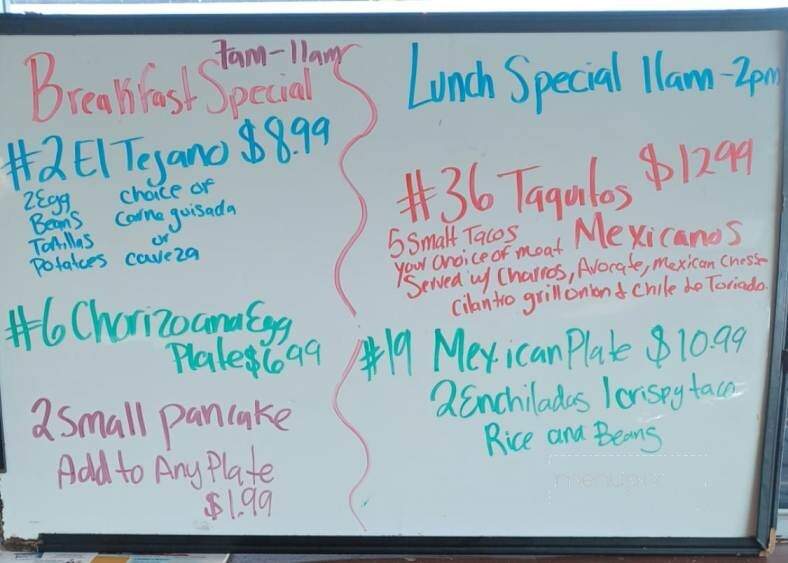 7am-11am
Breakfast Special
#2 El Tejano $8.99
2 Egg choice of
Beans carne guisada
Tortillas or
Potatoes caveza
#6 Chorizo and Egg
Plate $6.99
2 small pancake
Add to Any Plate
$1.99
Lunch Special 11am-2pm
#36 Taquitos $12.99
Mexicanos
5 Small Tacos
your choice of meat
Served w/ Charros, Avocate, Mexican Chesse
Cilantro grill onion & Chile de Toriado.
#19 Mexican Plate $10.99
2 Enchiladas 1 crispy taco
Rice and Beans